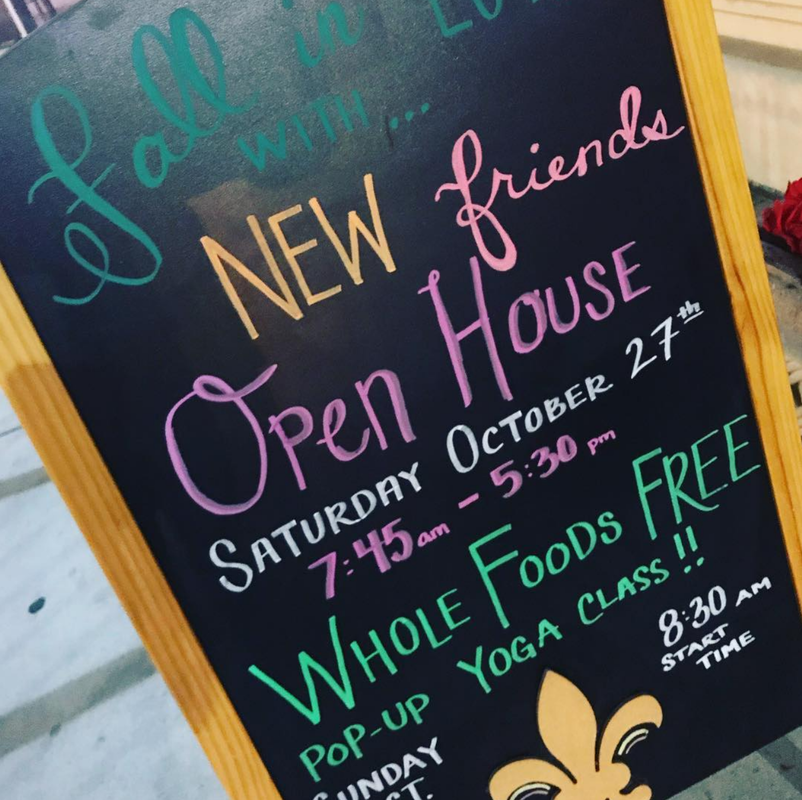 fall in
WITH...
NEW friends
OPen HOUSE
SATURDAY OCTOBER 27th
7:45am - 5:30 pm
WHOLE FOODS FREE
POP-UP YOGA CLASS!!
8:30 AM
START
TIME
SUNDAY